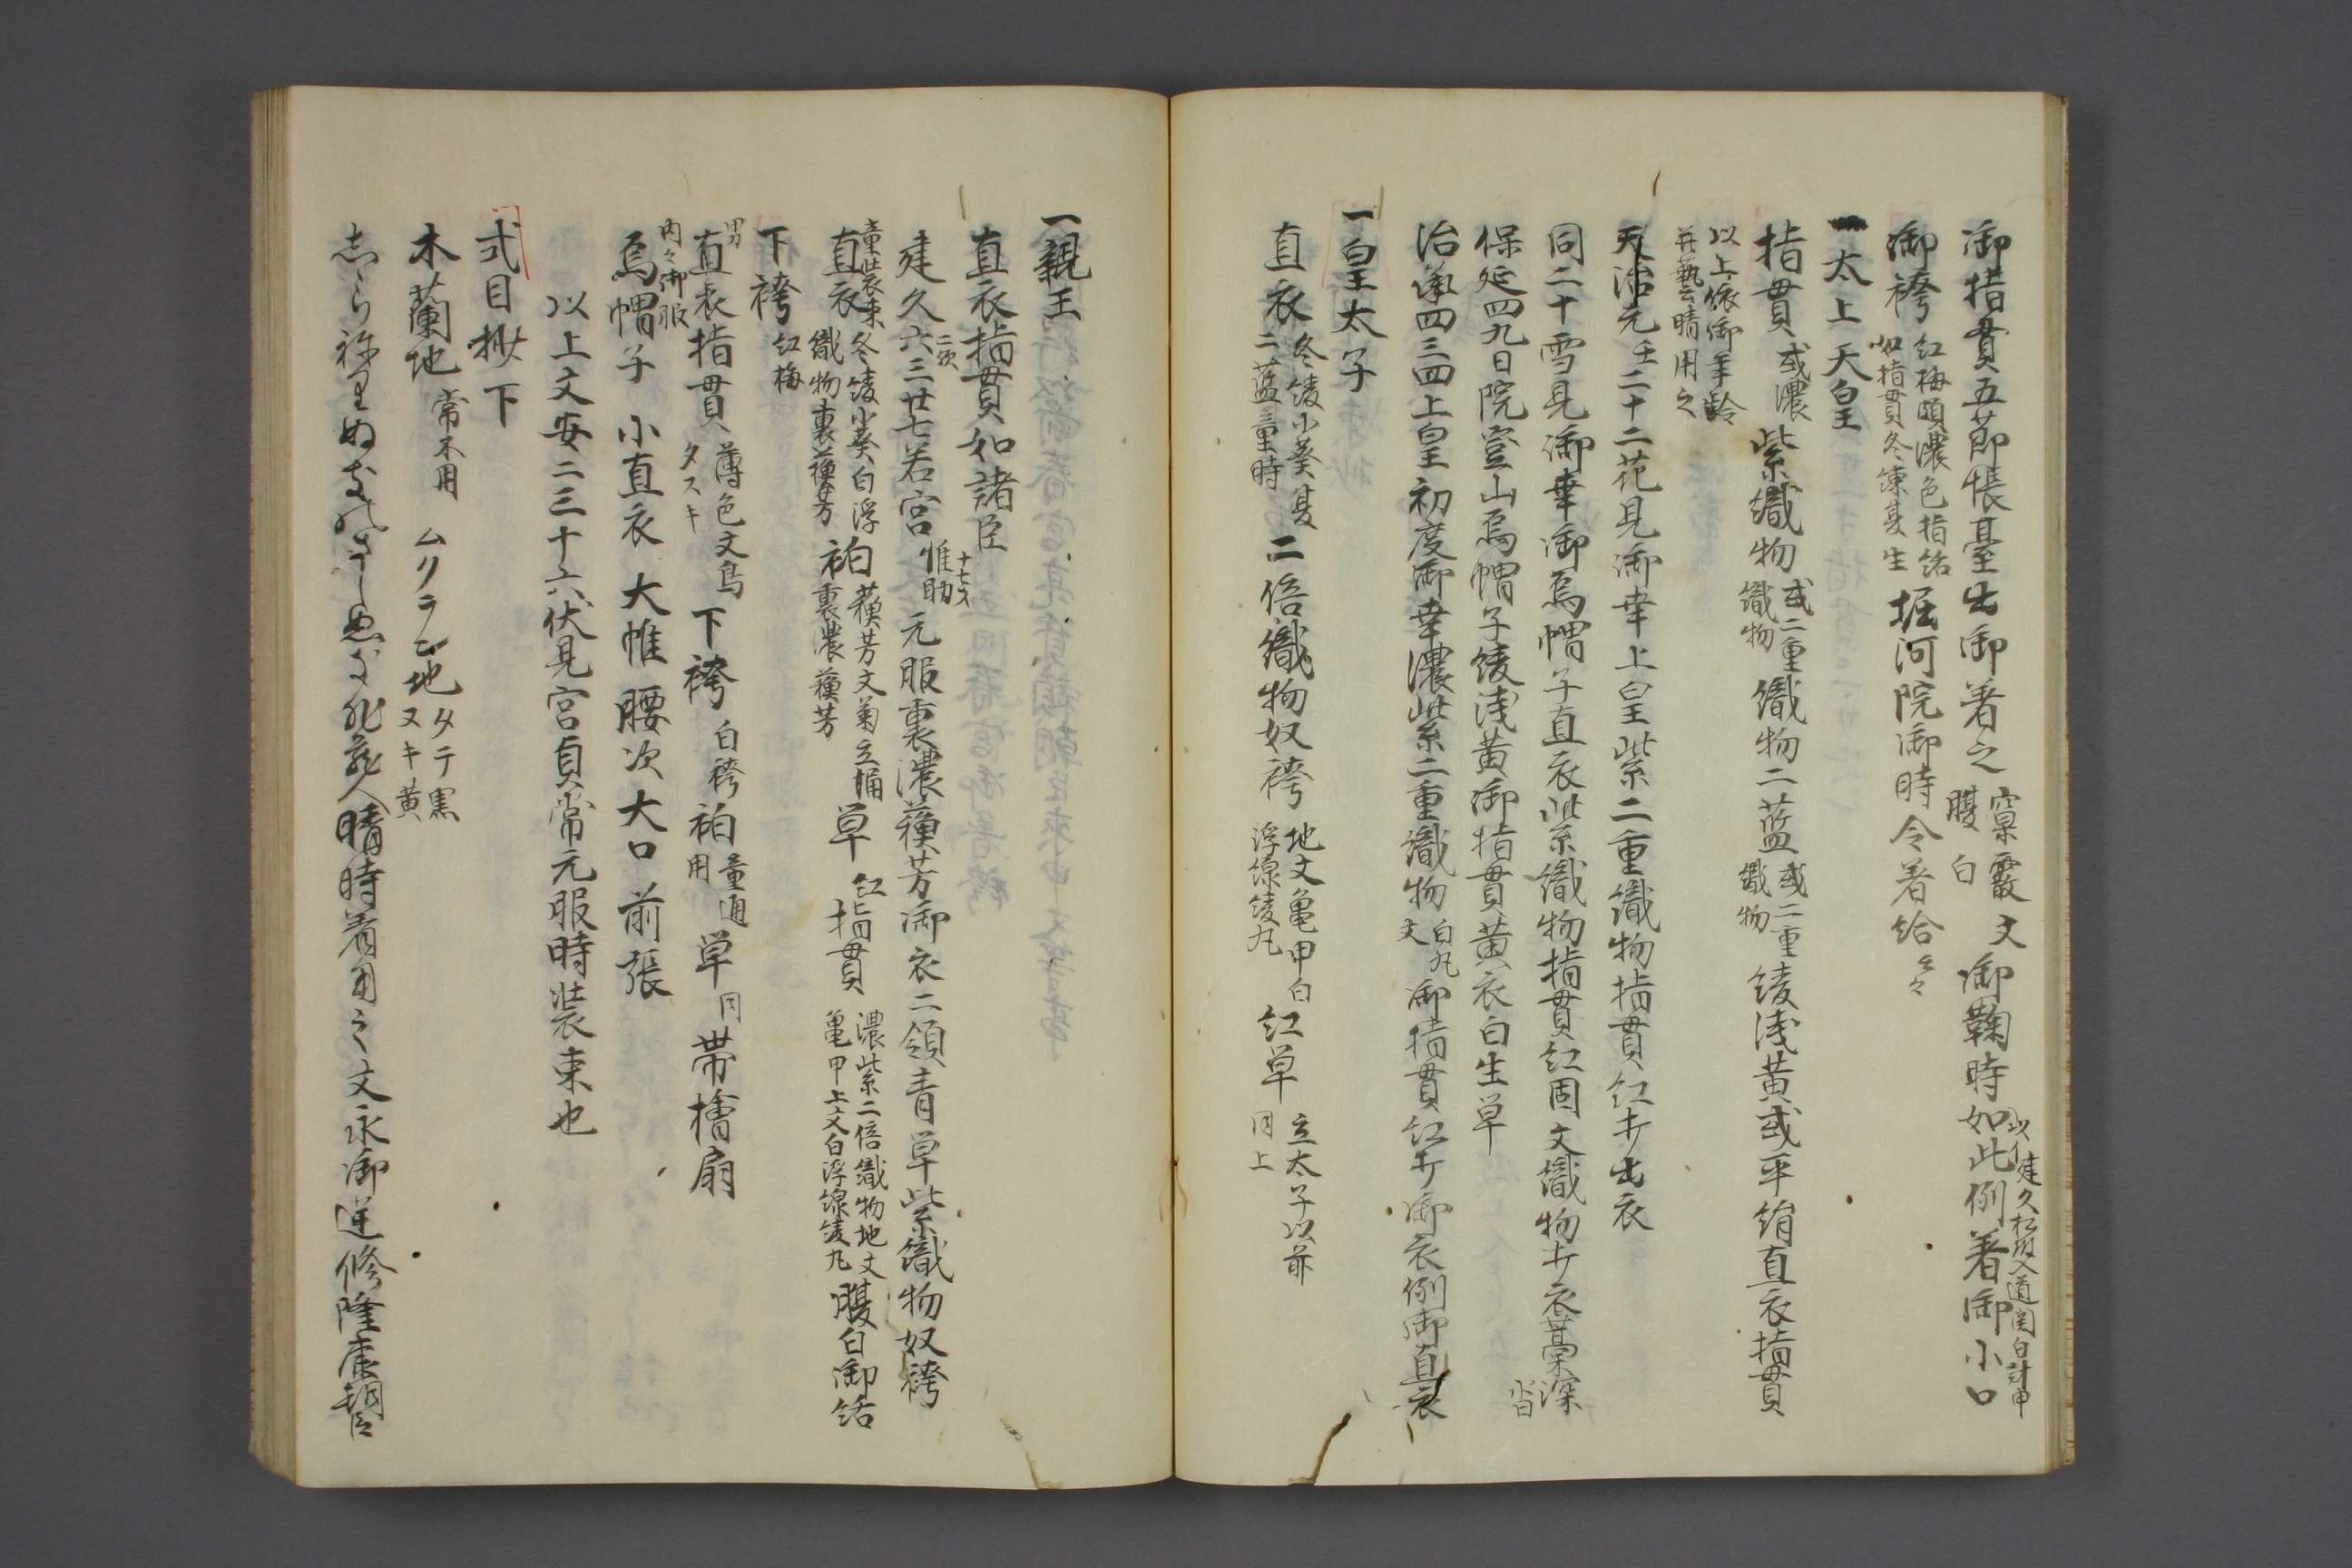 御指貫五節帳臺出御著之 窠霰文 腹白 御鞠時如此例著御小口
以仁建久松殿入道関白計申
御袴 紅梅頗濃色指給 如指貫冬練夏生 堀河院御時令著給云々
一太上天皇
指貫 或濃 紫織物 或二重織物 織物二藍 或二重織物 綾浅黄或平絹直衣指貫
以上依御年齢
并藝晴用之
天治元壬二十二花見御幸上皇紫二重織物指貫紅打出衣
同二十雪見御幸御烏帽子直衣紫織物指貫紅固文織物打衣藁深沓
保延四九日院登山烏帽子綾浅黄御指貫黄衣白生単
治承四三四上皇初度御幸濃紫二重織物 文白丸 御指貫紅打御衣例御直衣
一皇太子
直衣 冬綾小葵夏二藍童時 二倍織物奴袴 地文亀甲白浮線綾丸 紅単 立太子以前同上
一親王
直衣指貫如諸臣
建久六三廿七若宮 惟明 十七才 元服裏濃蘓芳御衣二領青単紫織物奴袴
二宮
童装束
直衣 冬綾小葵白浮織物裏蘓芳 衵 蘓芳文菊立涌裏濃蘓芳 単 紅 指貫 濃紫二倍織物地文亀甲上文白浮線綾丸 腹白御括
下袴 紅梅
男
直衣指貫 薄色文鳥タスキ 下袴 白袴 衵 童通用 単 同 帯檜扇
内々御服
烏帽子 小直衣 大帷 腰次 大口 前張
以上文安二三十六伏見宮貞常元服時装束也
式目抄下
木蘭地 常不用 ムクランヂ地 タテ黒ヌキ黄
晴時着用之文永御逆修隆康朝臣